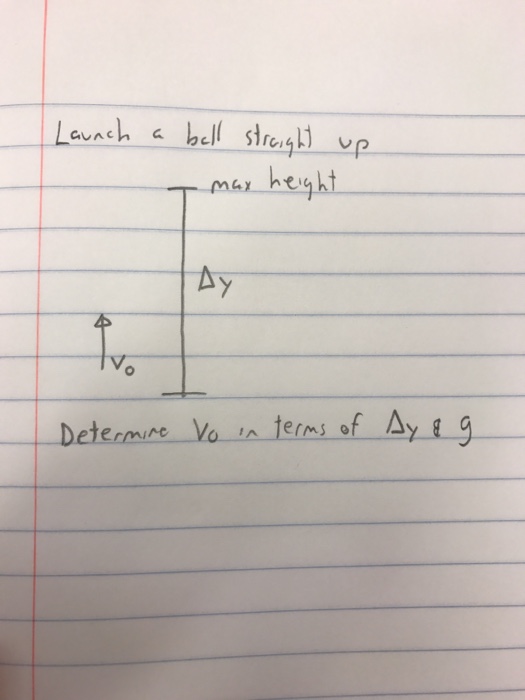 Launch a ball straight up
max height
Δy
V₀
Determine V₀ in terms of Δy & g